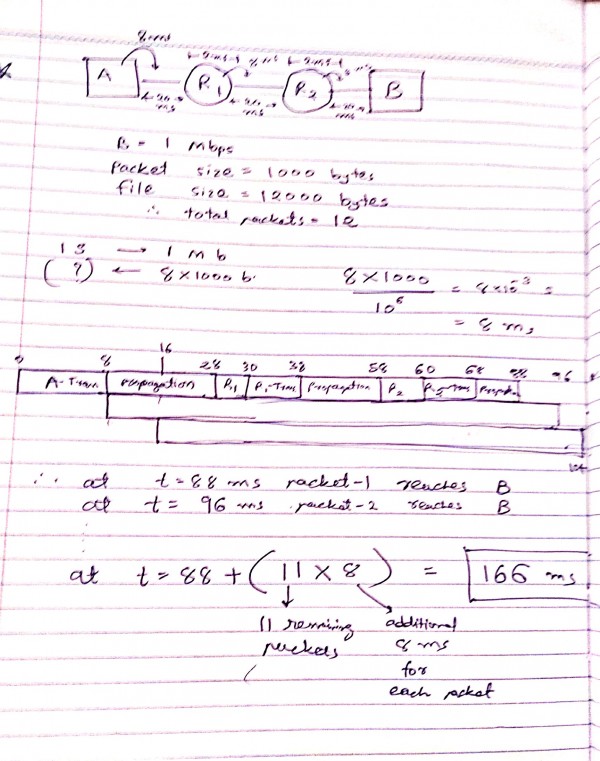 8 ms
A R1 R2 B
R = 1 Mbps
Packet size = 1000 bytes
file size = 12000 bytes
∴ total packets = 12
1 s → 1 mb
( ? ) ← 8×1000 b.
8 × 1000 / 10⁶ = 8×10⁻³ s
= 8 ms
0 8 16 28 30 38 58 60 68 88 96
A-Tran propagation R1 R1-Tran Propagation R2 R2-Trans Propagn
104
∴ at t=88 ms packet-1 reaches B
at t= 96 ms packet-2 reaches B
at t=88 + (11 × 8) = 166 ms
11 remaining packets
additional 8 ms for each packet